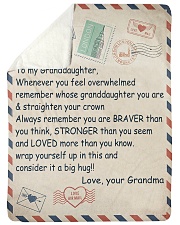 To my Granddaughter,
Whenever you feel overwhelmed
remember whose granddaughter you are
& straighten your crown
Always remember you are BRAVER than
you think, STRONGER than you seem
and LOVED more than you know.
wrap yourself up in this and
consider it a big hug!!
Love, your Grandma